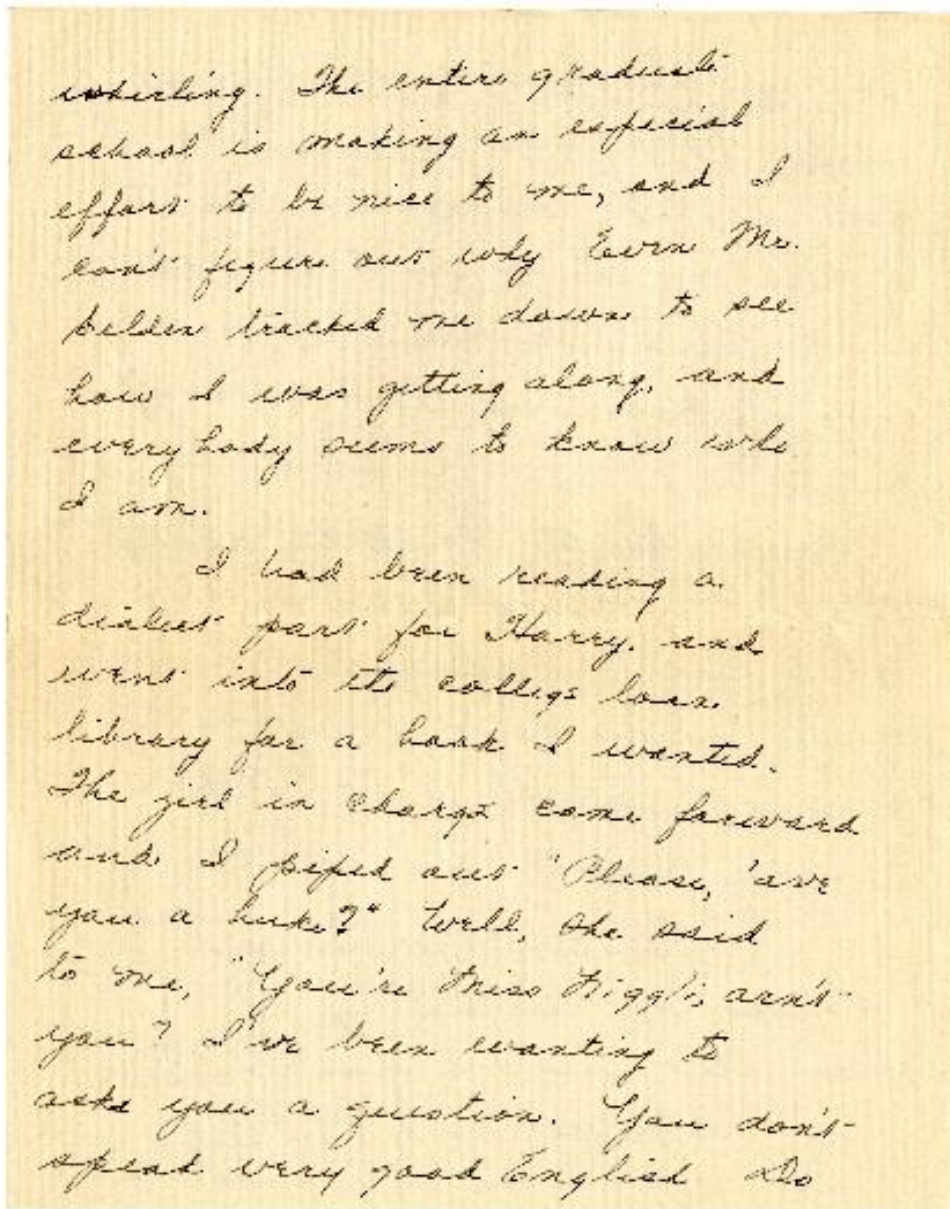 whirling. The entire graduate
school is making an especial
effort to be nice to me, and I
can't figure out why Even Mr.
Selden tracked me down to see
how I was getting along, and
everybody seems to know who
I am.
I had been reading a
dialect part for Harry, and
went into the college loan
library for a book I wanted.
The girl in charge came forward
and I piped out "Please, 'ave
you a buke?" Well, she said
to me, "You're Miss Niggli, arn't
you? I've been wanting to
ask you a question. You don't
speak very good English Do